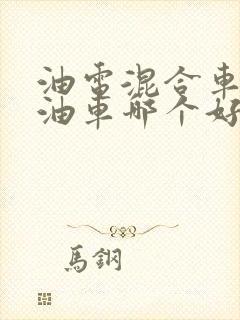 油電混合車
油車哪个好
馬鋼